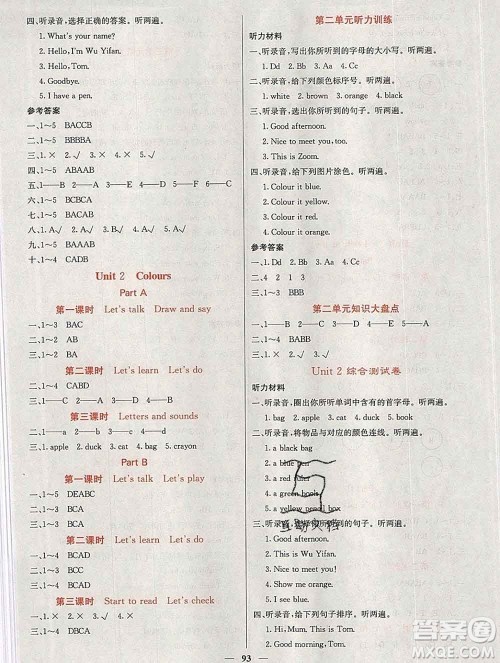 四、听录音，选择正确的答案。听两遍。
1. What's your name?
2. Hello, I'm Wu Yifan.
3. Hello, Tom.
4. Goodbye.
5. I have a pen.
参考答案
一、1～5 BACCB
二、1～5 BBBBA
三、1. × 2. √ 3. × 4. × 5. √
四、1～5 ABAAB
五、1——B 2——A 3——E 4——C 5——D
六、1～5 BCBCA
七、1～5 BACCB
八、1～5 BABAB
九、1. × 2. √ 3. √ 4. × 5. √
十、1～4 CADB
Unit 2 Colours
Part A
第一课时 Let's talk Draw and say
一、1～3 BAC
二、1～3 BCA
三、1～4 BAAB
第二课时 Let's learn Let's do
一、1～4 CABD
二、1——b 2——d 3——a 4——e 5——c
第三课时 Letters and sounds
一、1——d 2——c 3——b 4——a
二、1～3 CAB
三、1. apple 2. duck 3. cat 4. bag 5. crayon
Part B
第一课时 Let's talk Let's play
一、1～5 DEABC
二、1～3 BCA
三、1～3 BCA
第二课时 Let's learn Let's do
一、1～4 BCAD
二、1. √ 2. × 3. √ 4. ×
三、1～4 BCAD
第三课时 Start to read Let's check
一、1～3 CAB
二、1. √ 2. × 3. √ 4. ×
三、1～4 DBCA
第二单元听力训练
听力材料
一、听录音，写出你所听到的字母的大小写。听两遍。
1. Dd 2. Bb 3. Aa 4. Cc
二、听录音，给下列颜色标序号。听两遍。
1. white 2. brown 3. orange 4. black
三、听录音，选出你所听到的句子。听两遍。
1. Good afternoon.
2. Nice to meet you, too.
3. This is Zoom.
四、听录音，给下列图片涂色。听两遍。
1. Colour it blue.
2. Colour it yellow.
3. Colour it green.
4. Colour it orange.
5. Colour it red.
参考答案
一、1. Dd 2. Bb 3. Aa 4. Cc
二、4 2 1 3
三、1～3 BAB
四、略
第二单元知识大盘点
一、1——B 2——E 3——D 4——C 5——A
二、1——D 2——C 3——A 4——B
Unit 2 综合测试卷
听力材料
一、听录音，圈出你所听单词中含有的首字母。听两遍。
1. bag 2. apple 3. cat 4. duck 5. ant
二、听录音，将物品与对应的颜色连线。听两遍。
1. a black bag
2. a blue pen
3. a red ruler
4. a green book
5. a yellow pencil box
三、听录音，选择所听到的句子。听两遍。
1. Good afternoon.
2. This is Wu Yifan.
3. Nice to meet you.
4. Show me orange.
5. I see brown.
四、听录音，给下列句子排序。听两遍。
1. Hi, Mum. This is Tom.
2. Good morning, Tom.
93
作业精灵